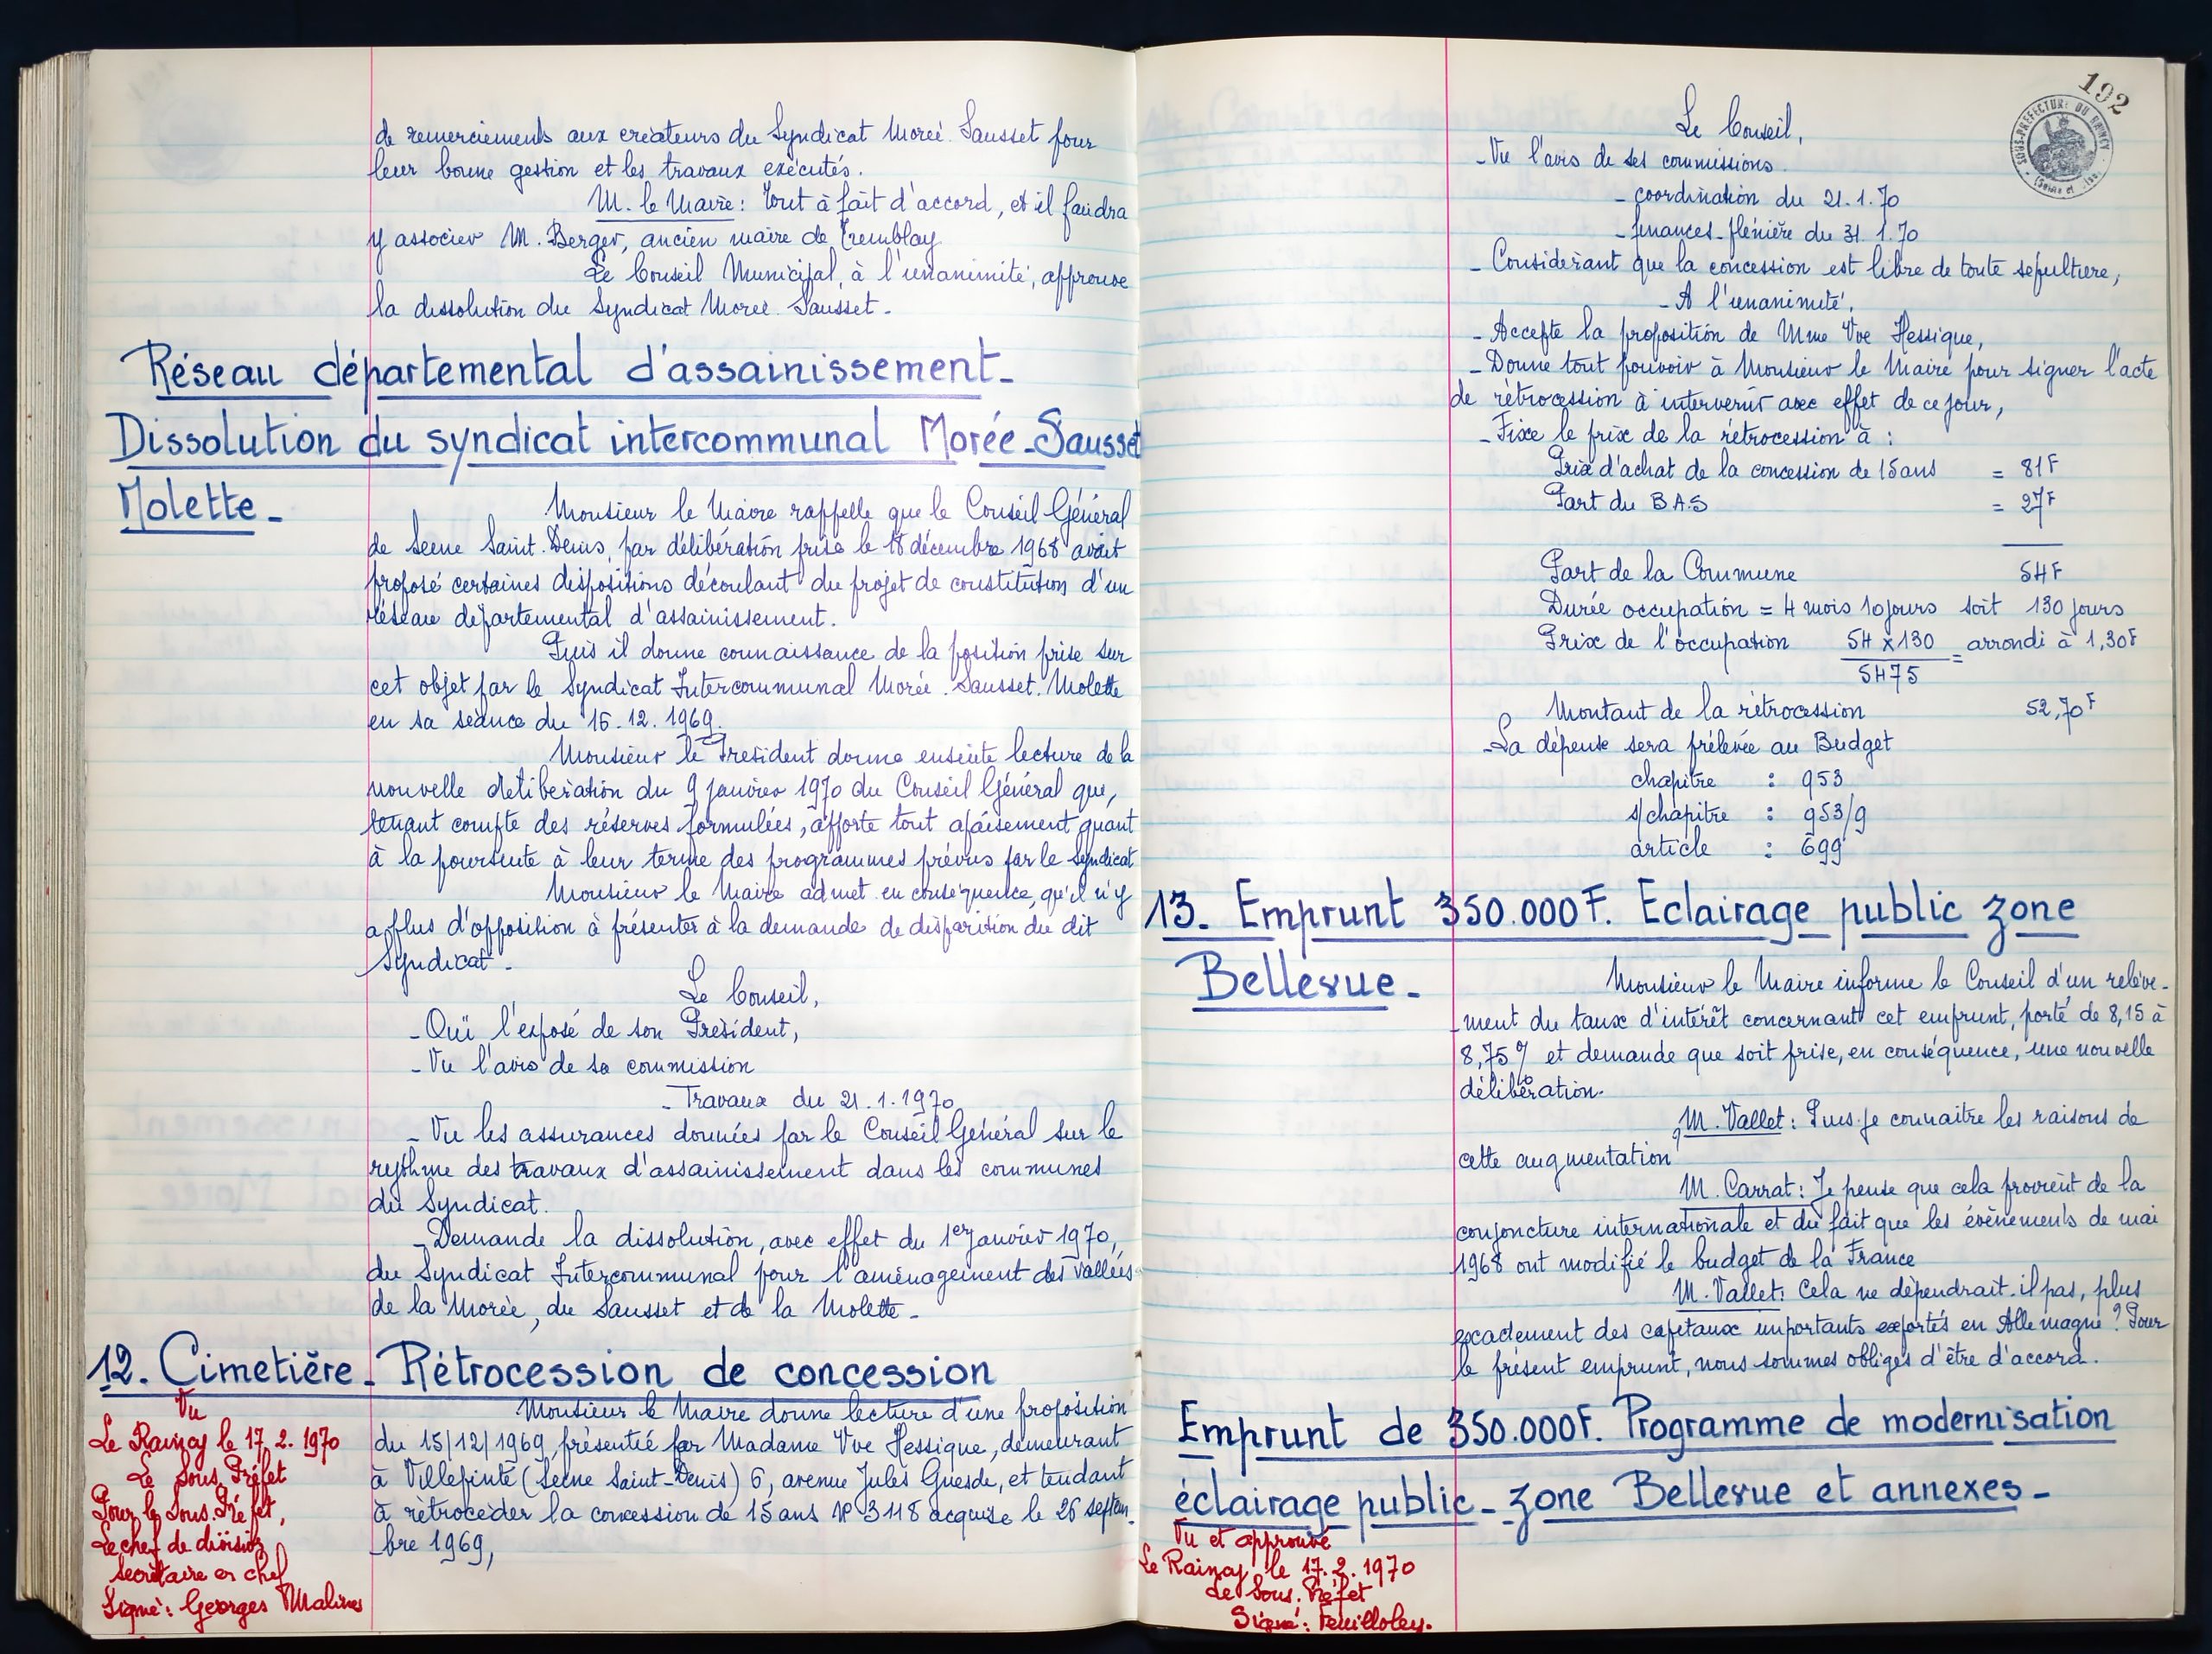 de remerciements aux créateurs du Syndicat Morée. Sausset pour
leur bonne gestion et les travaux exécutés.
M. le Maire: Tout à fait d'accord, et il faudra
y associer M. Berger, ancien maire de Tremblay
Le Conseil Municipal, à l'unanimité, approuve
la dissolution du Syndicat Morée. Sausset.
Réseau départemental d'assainissement_
Dissolution du syndicat intercommunal Morée_Sausset
Molette_
Monsieur le Maire rappelle que le Conseil Général
de Seine Saint. Denis, par délibération prise le 18 décembre 1968 avait
proposé certaines dispositions découlant du projet de constitution d'un
réseau départemental d'assainissement.
Puis il donne connaissance de la position prise sur
cet objet par le Syndicat Intercommunal Morée. Sausset. Molette
en sa séance du 15.12.1969.
Monsieur le Président donne ensuite lecture de la
nouvelle délibération du 9 janvier 1970 du Conseil Général que,
tenant compte des réserves formulées, apporte tout apaisement quant
à la poursuite à leur terme des programmes prévus par le Syndicat
Monsieur le Maire admet en conséquence, qu'il n'y
a plus d'opposition à présenter à la demande de disparition du dit
Syndicat.
Le Conseil,
- Ouï l'exposé de son Président,
- Vu l'avis de sa commission
- Travaux du 21.1.1970
- Vu les assurances données par le Conseil Général sur le
rythme des travaux d'assainissement dans les communes
du Syndicat.
- Demande la dissolution, avec effet du 1er janvier 1970,
du Syndicat Intercommunal pour l'aménagement des vallées
de la Morée, du Sausset et de la Molette_
12. Cimetière_ Rétrocession de concession
Monsieur le Maire donne lecture d'une proposition
du 15/12/1969 présentée par Madame Vve Hessique, demeurant
à Villepinte (Seine Saint-Denis) 6, avenue Jules Guesde, et tendant
à rétrocéder la concession de 15 ans N° 3118 acquise le 26 septem_
_bre 1969,
Vu
Le Raincy le 17.2.1970
Le Sous Préfet
Pour le Sous. Préfet,
Le chef de division
secrétaire en chef
Signé: Georges Malines
192
SOUS-PREFECTURE DU RAINCY
Le Conseil,
- Vu l'avis de ses commissions.
- coordination du 21.1.70
- finances-plénière du 31.1.70
- Considérant que la concession est libre de toute sépulture,
- A l'unanimité,
- Accepte la proposition de Mme Vve Hessique,
- Donne tout pouvoir à Monsieur le Maire pour signer l'acte
de rétrocession à intervenir avec effet de ce jour,
- Fixe le prix de la rétrocession à :
Prix d'achat de la concession de 15 ans = 81F
Part du BAS = 27F
Part de la Commune 54F
Durée occupation = 4 mois 10 jours soit 130 jours
Prix de l'occupation 54 x 130 = arrondi à 1,30F
5475
Montant de la rétrocession 52,70F
- La dépense sera prélevée au Budget
chapitre : 953
s/chapitre : 953/9
article : 699
13. Emprunt 350.000F. Eclairage public zone
Bellevue_
Monsieur le Maire informe le Conseil d'un relève-
-ment du taux d'intérêt concernant cet emprunt, porté de 8,15 à
8,75% et demande que soit prise, en conséquence, une nouvelle
délibération.
M. Vallet: Puis-je connaitre les raisons de
cette augmentation ?
M. Carrat: Je pense que cela provient de la
conjoncture internationale et du fait que les évènements de mai
1968 ont modifié le budget de la France
M. Vallet: Cela ne dépendrait-il pas, plus
exactement des capitaux importants exportés en Allemagne ? Pour
le présent emprunt, nous sommes obligés d'être d'accord.
Emprunt de 350.000F. Programme de modernisation
éclairage public_ zone Bellevue et annexes_
Vu et approuvé
Le Raincy, le 17.2.1970
Le Sous. Préfet
Signé: Feuilloley.